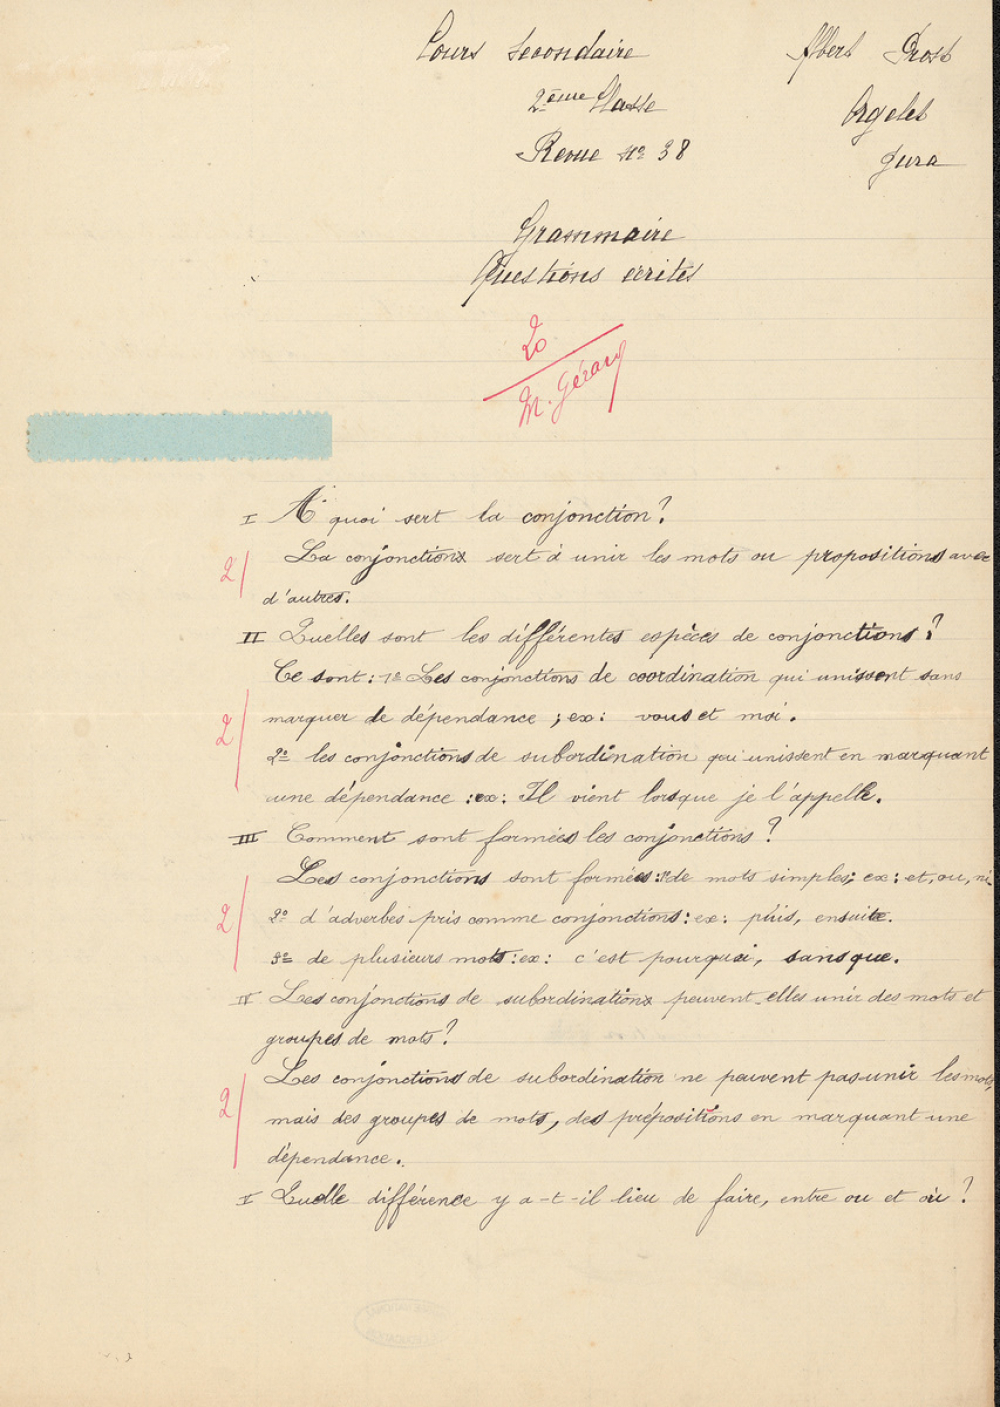 Cours Secondaire
Albert Prost
2ème Classe
Orgelet
Revue No 38
Jura
Grammaire
Questions écrites
20
M. Gérard
I A quoi sert la conjonction?
2/ La conjonction sert à unir les mots ou propositions avec
d'autres.
II Quelles sont les différentes espèces de conjonctions?
Ce sont: 1o Les conjonctions de coordination qui unissent sans
2/ marquer de dépendance; ex: vous et moi.
2o les conjonctions de subordination qui unissent en marquant
une dépendance: ex: Il vient lorsque je l'appelle.
III Comment sont formées les conjonctions?
Les conjonctions sont formées: 1o de mots simples; ex: et, ou, ni
2/ 2o d'adverbes pris comme conjonctions: ex: puis, ensuite.
3o de plusieurs mots: ex: c'est pourquoi, sans que.
IV Les conjonctions de subordination peuvent-elles unir des mots et
groupes de mots?
Les conjonctions de subordination ne peuvent pas unir les mots,
2/ mais des groupes de mots, des prépositions en marquant une
dépendance.
V Quelle différence y a-t-il lieu de faire, entre ou et où?